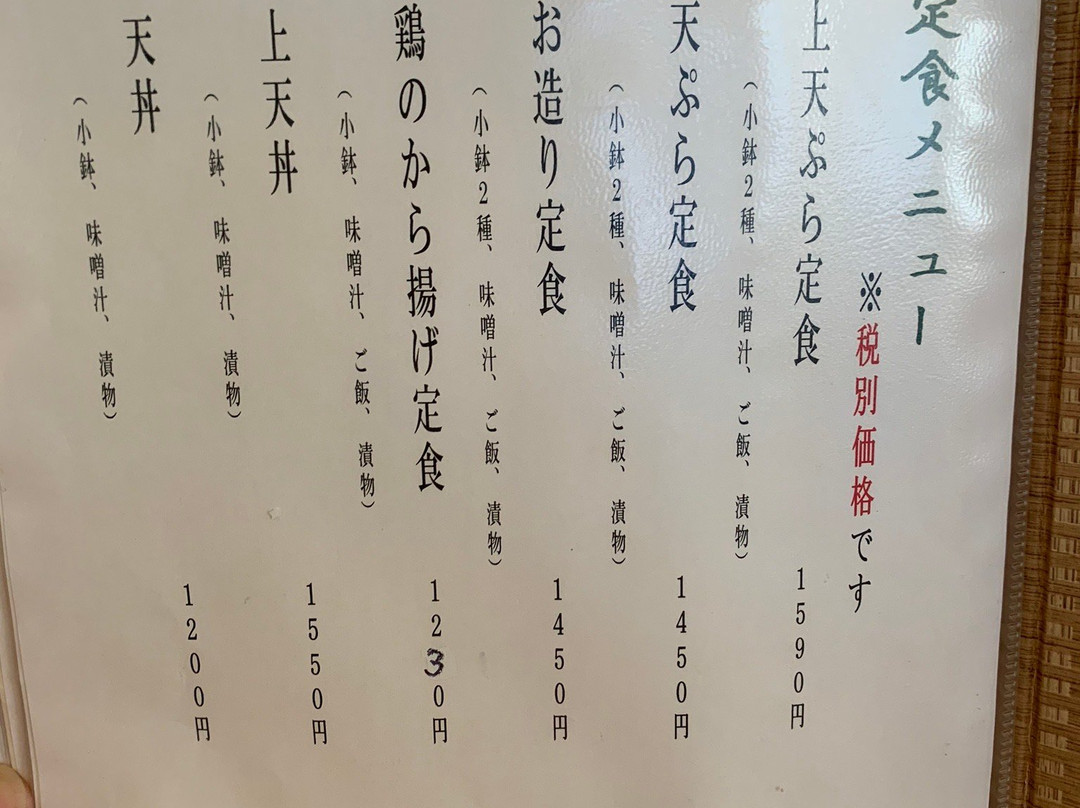 定食メニュー
※税別価格です
上天ぷら定食
1590円
(小鉢2種、味噌汁、ご飯、漬物)
天ぷら定食
1450円
(小鉢2種、味噌汁、ご飯、漬物)
お造り定食
1450円
(小鉢2種、味噌汁、ご飯、漬物)
鶏のから揚げ定食
1230円
(小鉢、味噌汁、ご飯、漬物)
上天丼
1550円
(小鉢、味噌汁、漬物)
天丼
1200円
(小鉢、味噌汁、漬物)